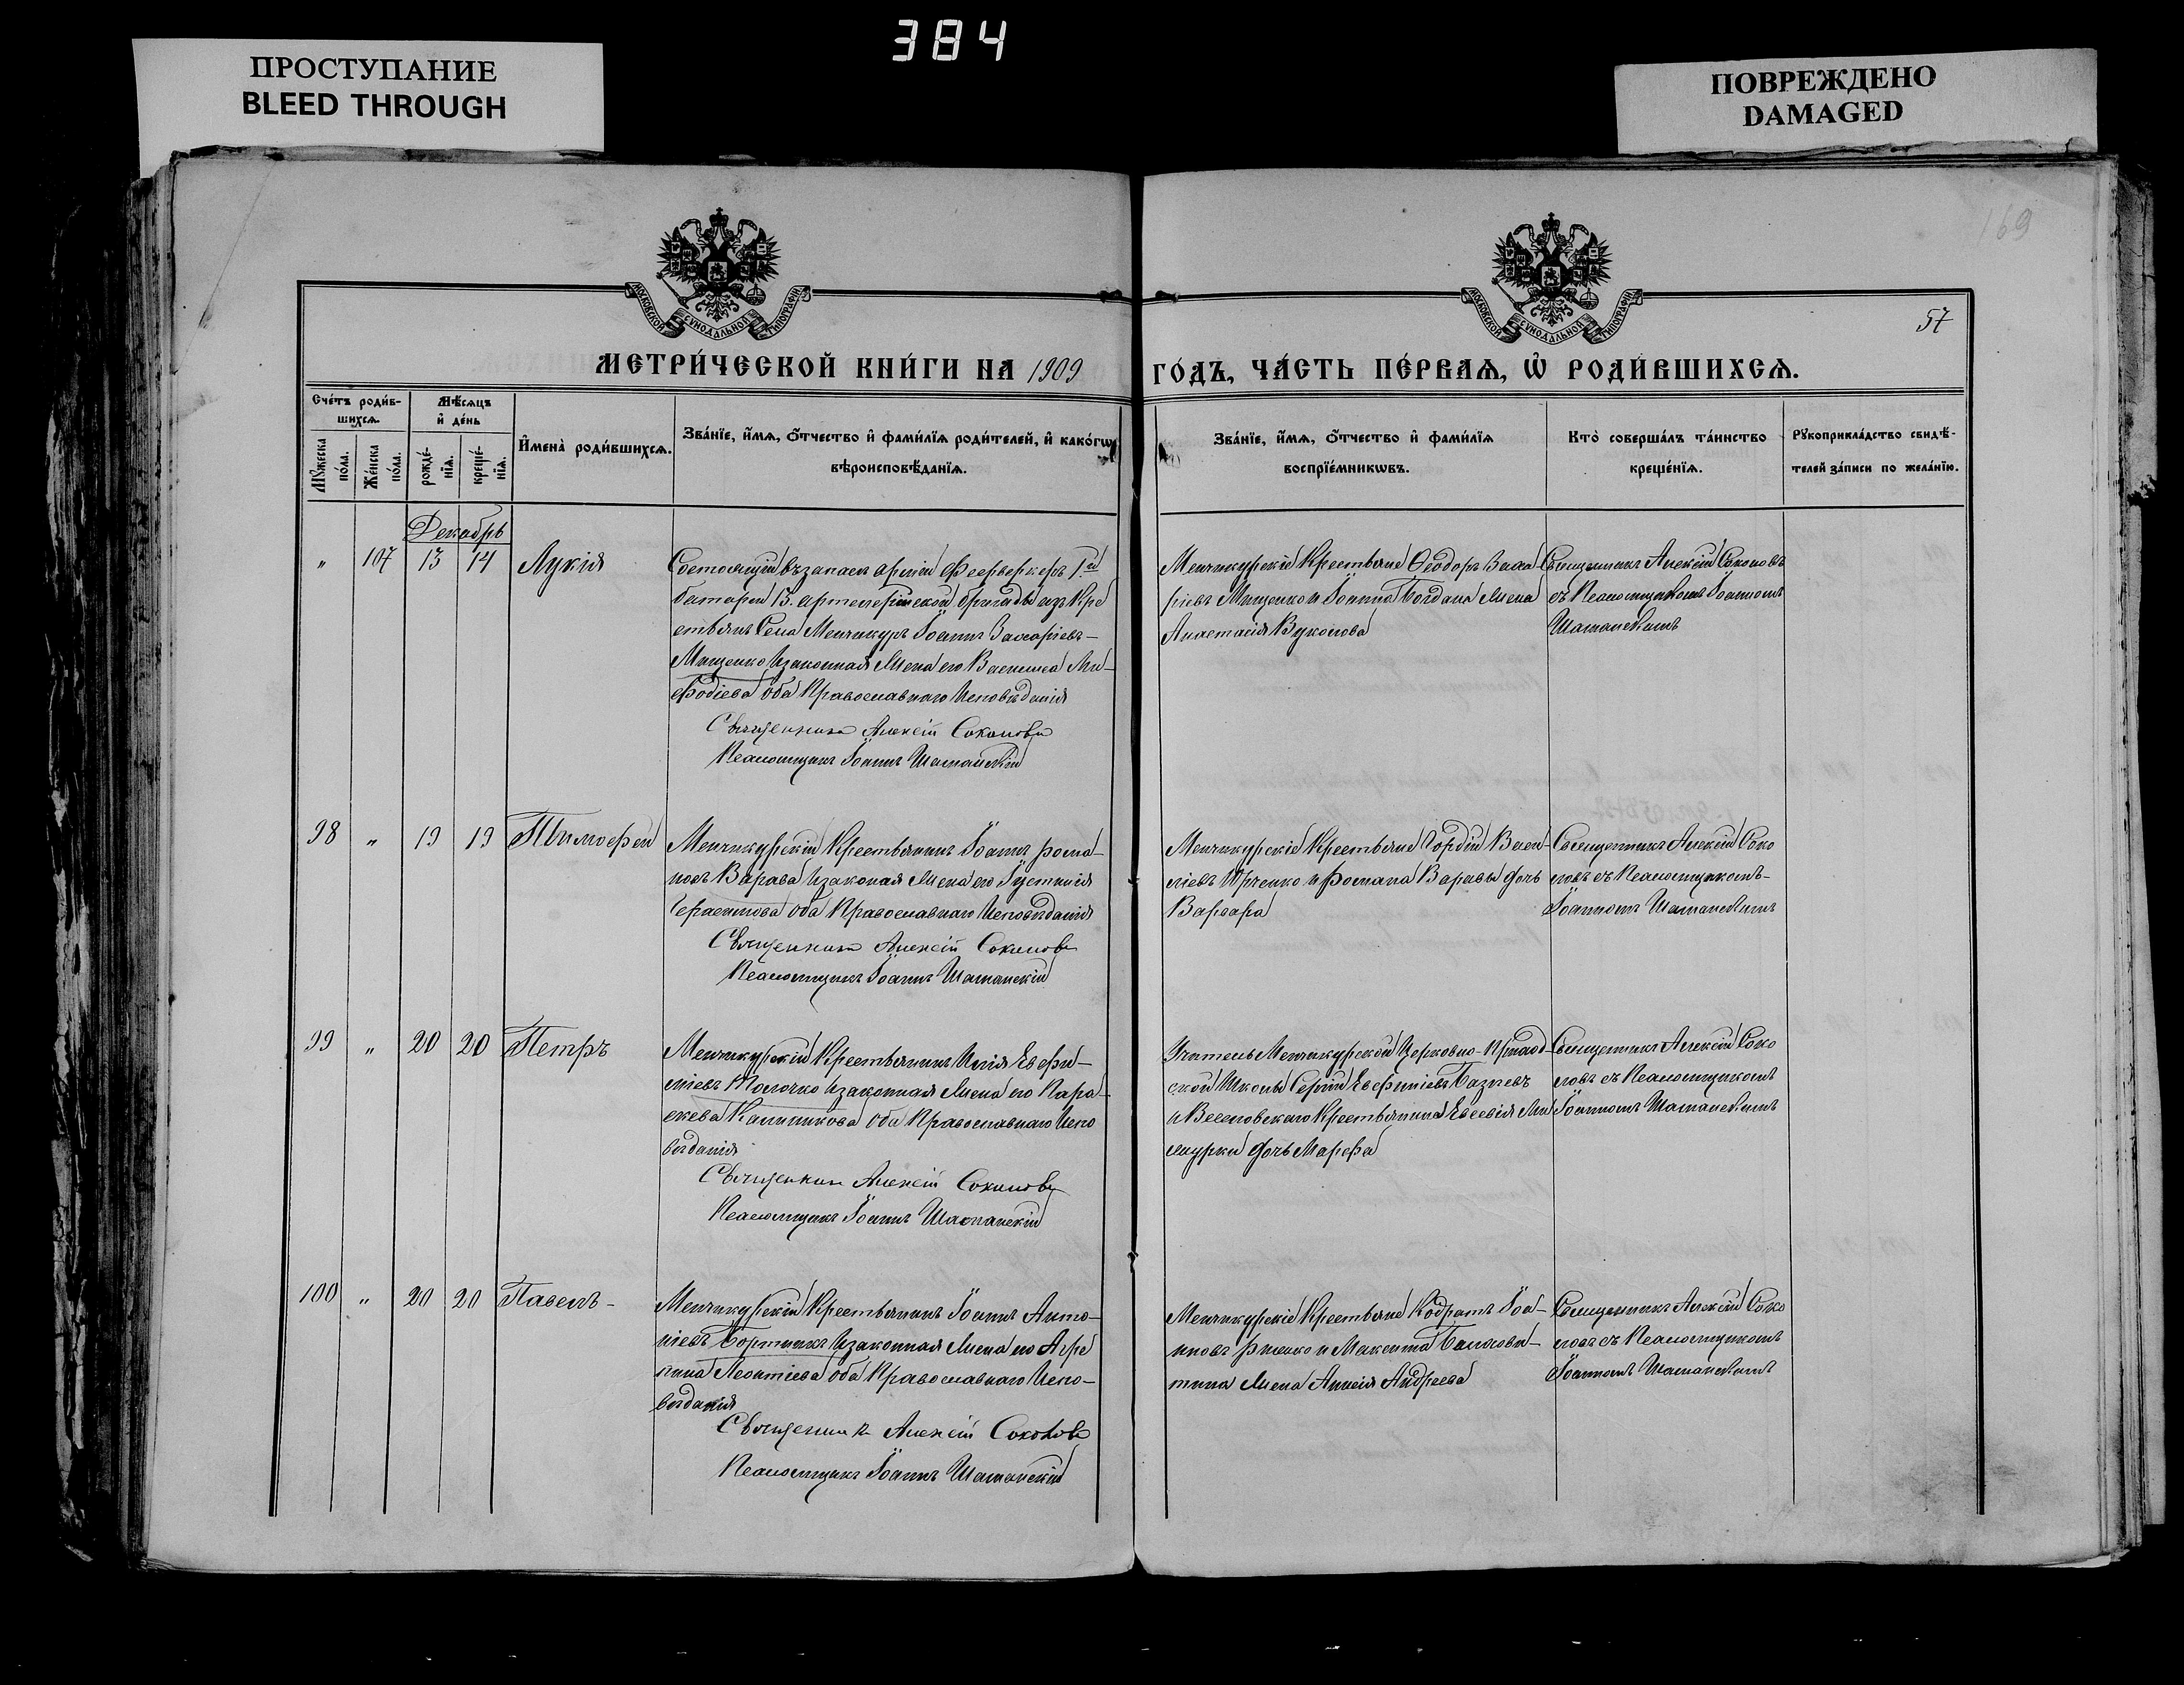 384
ПРОСТУПАНИЕ
BLEED THROUGH
ПОВРЕЖДЕНО
DAMAGED
169
57
МОСКОВСКОЙ СѴНОДАЛЬНОЙ ТИПОГРАФІИ
МОСКОВСКОЙ СѴНОДАЛЬНОЙ ТИПОГРАФІИ
МЕТРИ́ЧЕСКОЙ КНИ́ГИ НА 1909 ГО́ДЪ, ЧА́СТЬ ПЕ́РВАѦ, Ѡ҆ РОДИ́ВШИХСѦ.
Сче́тъ роди́в-
шихсѧ.
Мꙋ́жеска по́ла.
Же́нска по́ла.
Мѣ́сѧцъ
и҆ де́нь
рожде́-
нїѧ.
креще́-
нїѧ.
И҆мена̀ роди́вшихсѧ.
Зва́нїе, и҆́мѧ, ѻ҆́тчество и҆ фами́лїѧ роди́телей, и҆ како́гѡ
вѣроисповѣ́данїѧ.
Зва́нїе, и҆́мѧ, ѻ҆́тчество и҆ фами́лїѧ
воспрїе́мникѡвъ.
Кто̀ соверша́лъ та́инство
креще́нїѧ.
Рꙋкоприкла́дство свидѣ́-
телей за́писи по жела́нїю.
Декабрь
" 107 13 14 Лукія
Состоящій въ запасѣ арміи Фейерверкеръ 1й
батареи 13. артилерійской бригады изъ Кре
стьянъ Села Менчикуръ Іоаннъ Захаріевъ-
Мищенко и законная жена его Васщиса Ме-
фодіева оба Православнаго Исповѣданія
Священникъ Алексій Соколовъ
Псаломщикъ Іоаннъ Шатанскій
Менчикурскіе Крестьяне Ѳеодоръ Заха-
ріевъ Мищенко и Іоанна Богдана жена
Анастасія Вуколова
Священникъ Алексій Соколовъ
съ Псаломщикомъ Іоанномъ
Шатанскимъ
98 " 19 19 Тимофей
Менчикурскій Крестьянинъ Іоаннъ Рома-
новъ Варава и законая жена его Іустинія
оба Православнаго Исповѣданія
Священникъ Алексій Соколовъ
Псаломщикъ Іоаннъ Шатанскій
Менчикурскіе Крестьяне Гордій Васи-
ліевъ Ирченко и Романа Варавы дочь
Варвара
Священникъ Алексій Соко
ловъ съ Псаломщикомъ-
Іоанномъ Шатанскимъ
99 " 20 20 Петръ
Менчикурскій Крестьянинъ Илія Евфи-
міевъ Толочко и законная жена его Пара-
скева Калиникова оба Православнаго Испо
вѣданія
Священникъ Алексій Соколовъ
Псаломщикъ Іоаннъ Шатанскій
Учитель Менчикурской Церковно-Приход-
ской Школы Сергій Евфиміевъ
и Веселовскаго Крестьянина Евсевія
дочь Марфа
Священникъ Алексій Соко
ловъ съ Псаломщикомъ
Іоанномъ Шатанскимъ
100 " 20 20 Павелъ-
Менчикурскій Крестьянинъ Іоаннъ Анто-
ніевъ Бортникъ и законная жена его Агре
пина Леонтіева оба Православнаго Испо-
вѣданія
Священникъ Алексій Соколовъ
Псаломщикъ Іоаннъ Шатанскій
Менчикурскіе Крестьяне Кодратъ Іоа-
нновъ и Максима
жена Аннсія Андреева
Священникъ Алексій Соко
ловъ съ Псаломщикомъ
Іоанномъ Шатанскимъ